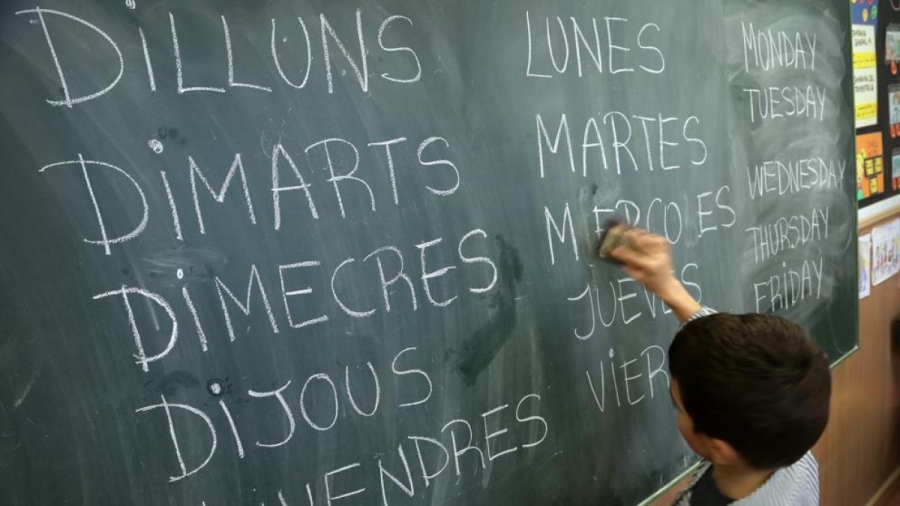 DiLLUNS
DiMARTS
DiMECRES
DiJOUS
VENDRES
LUNES
MARTES
JUEVES
VIER
MONDAY
TUESDAY
WEDNESDAY
THURSDAY
FRIDAY